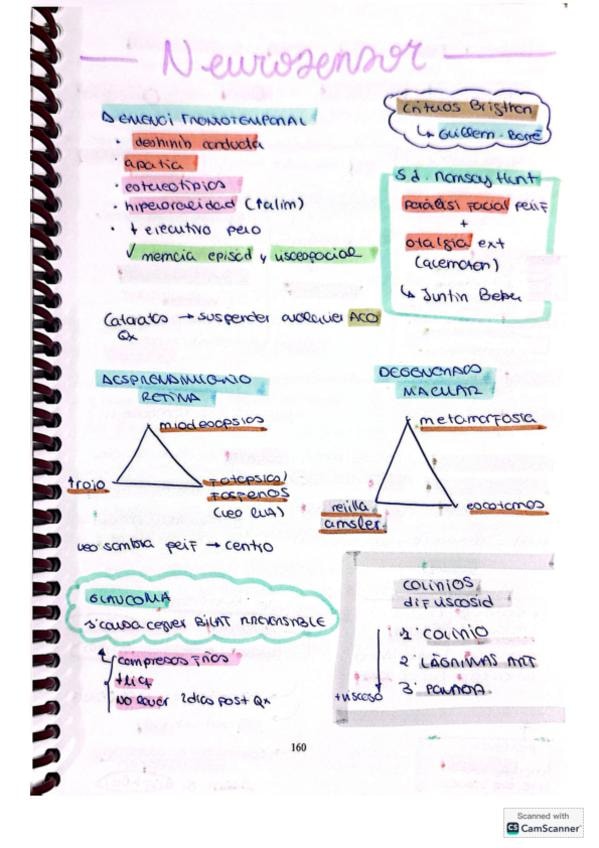 Neurosensor
DEMENCI FRONTOTEMPORAL
· deshinib conducta
· apatia
· estereotipios
· hiperoralidad (↑alim)
· ↓ ejecutivo pero
✓ memoria episod y visoespacial
Criterios Brighton
↳ Guillem-Barré
Sd. Ramsay Hunt
parálisi facial perif
+
otalgia ext
(quematon)
↳ Justin Beber
Cataratas → suspender cualquier ACO
Qx
DESPRENDIMIENTO
RETINA
miodesopsias
fotopsias/
fosfenos
(veo luz)
veo sombra perif → centro
DEGENERADO
MACULAR
metamorfosia
rejilla
amsler
escotomas
GLAUCOMA
1ª causa ceguer BILAT IRREVERSIBLE
compresas frías
no lavar 2 dias post Qx
COLIRIOS
dif viscosid
1º COLIRIO
2º LÁGRIMAS ART
3º POMADA
+ viscoso
160
Scanned with
CS CamScanner